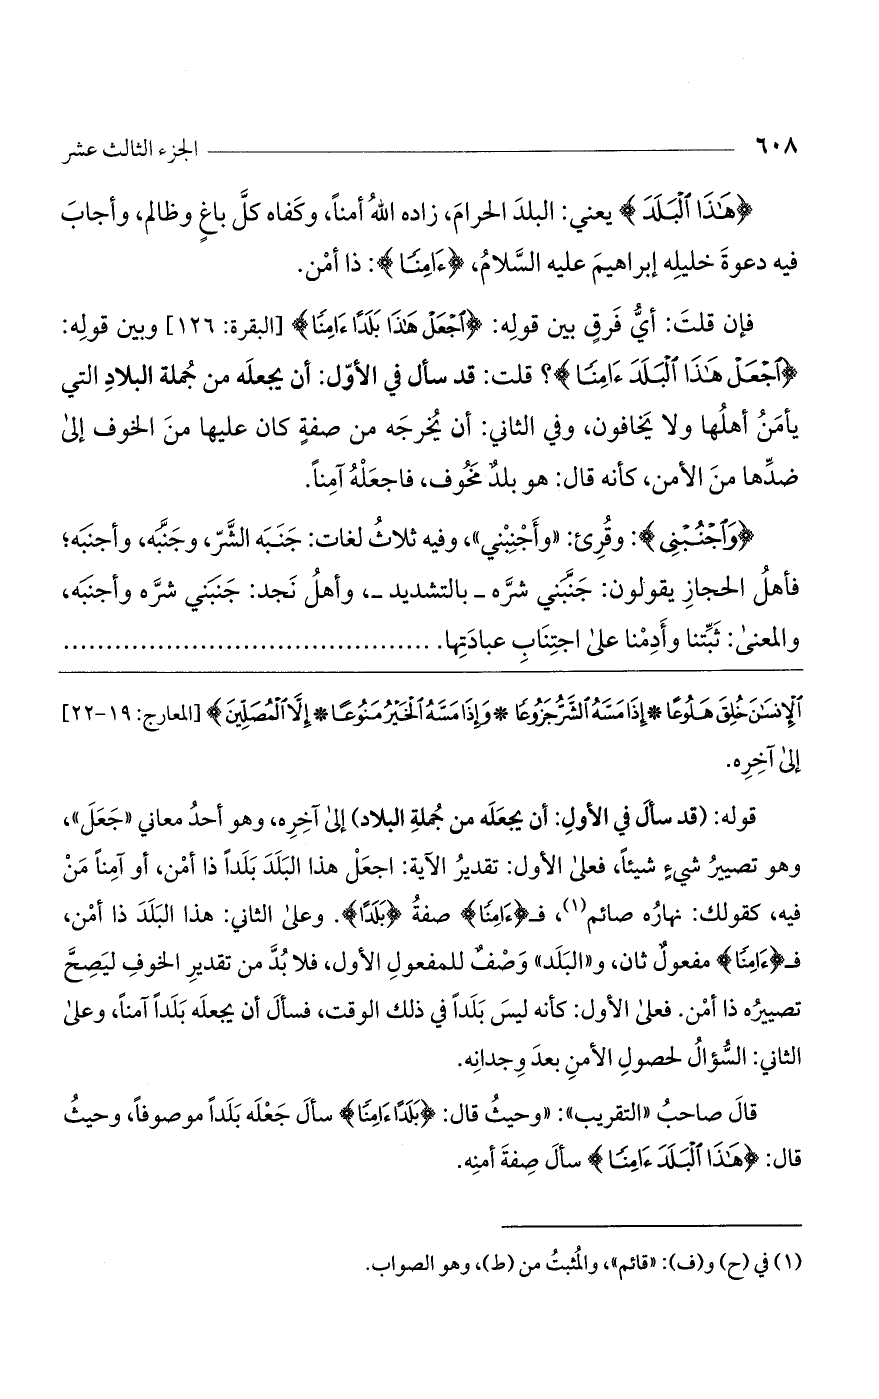 ٦٠٨ ــــــــــــــــــــ الجزء الثالث عشر
﴿هَٰذَا ٱلْبَلَدَ﴾ يعني: البلدَ الحرامَ، زاده اللهُ أمناً، وكَفاه كلَّ باغٍ وظالم، وأجابَ
فيه دعوةَ خليلِه إبراهيمَ عليه السَّلامُ، ﴿ءَامِنًا﴾: ذا أمْن.
فإن قلتَ: أيُّ فَرقٍ بين قولِه: ﴿ٱجْعَلْ هَٰذَا بَلَدًا ءَامِنًا﴾ [البقرة: ١٢٦] وبين قولِه:
﴿ٱجْعَلْ هَٰذَا ٱلْبَلَدَ ءَامِنًا﴾؟ قلت: قد سأل في الأوّل: أن يجعلَه من جُملة البلادِ التي
يأمَنُ أهلُها ولا يَخافون، وفي الثاني: أن يُخرجَه من صفةٍ كان عليها منَ الخوف إلىٰ
ضدِّها منَ الأمن، كأنه قال: هو بلدٌ مَخُوف، فاجعَلْهُ آمِناً.
﴿وَٱجْنُبْنِى﴾: وقُرِئ: «وأَجْنِبْني»، وفيه ثلاثُ لغات: جَنَبَه الشَّرّ، وجَنَّبَه، وأجنبَه؛
فأهلُ الحجازِ يقولون: جَنَّبَني شرَّه ـ بالتشديد ـ، وأهلُ نَجد: جَنَبَني شرَّه وأجنبَه،
والمعنىٰ: ثَبِّتنا وأَدِمْنا علىٰ اجتِنَابِ عبادَتِها. ........................................
ٱلْإِنسَٰنَ خُلِقَ هَلُوعًا * إِذَا مَسَّهُ ٱلشَّرُّ جَزُوعًا * وَإِذَا مَسَّهُ ٱلْخَيْرُ مَنُوعًا * إِلَّا ٱلْمُصَلِّينَ﴾ [المعارج: ١٩-٢٢]
إلىٰ آخِرِه.
قوله: (قد سألَ في الأولِ: أن يجعلَه من جُملةِ البلاد) إلىٰ آخِرِه، وهو أحدُ معاني «جَعَلَ»،
وهو تصييرُ شيءٍ شيئاً، فعلىٰ الأول: تقديرُ الآية: اجعَلْ هذا البَلَدَ بَلَداً ذا أمْن، أو آمِناً مَنْ
فيه، كقولك: نهارُه صائم(١)، فـ﴿ءَامِنًا﴾ صفةُ ﴿بَلَدًا﴾. وعلىٰ الثاني: هذا البَلَدَ ذا أمْن،
فـ﴿ءَامِنًا﴾ مفعولٌ ثان، و«البَلَد» وَصْفٌ للمفعولِ الأول، فلا بُدَّ من تقديرِ الخوفِ ليَصِحَّ
تصييرُه ذا أمْن. فعلىٰ الأول: كأنه ليسَ بَلَداً في ذلك الوقت، فسألَ أن يجعلَه بَلَداً آمناً، وعلىٰ
الثاني: السُّؤالُ لحصولِ الأمنِ بعدَ وِجدانِه.
قالَ صاحبُ «التقريب»: «وحيثُ قال: ﴿بَلَدًا ءَامِنًا﴾ سألَ جَعْلَه بَلَداً موصوفاً، وحيثُ
قال: ﴿هَٰذَا ٱلْبَلَدَ ءَامِنًا﴾ سألَ صِفةَ أمنِه.
(١) في (ح) و(ف): «قائم»، والمُثبتُ من (ط)، وهو الصواب.